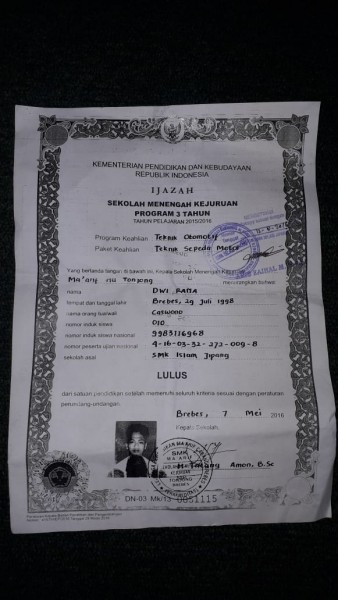 KEMENTERIAN PENDIDIKAN DAN KEBUDAYAAN
REPUBLIK INDONESIA
IJAZAH
SEKOLAH MENENGAH KEJURUAN
PROGRAM 3 TAHUN
TAHUN PELAJARAN 2015/2016
Program Keahlian : Teknik Otomotif
Paket Keahlian : Teknik Sepeda Motor
Yang bertanda tangan di bawah ini, Kepala Sekolah Menengah Kejuruan
Ma'arif NU Tonjong menerangkan bahwa
nama DWI RAMA
tempat dan tanggal lahir Brebes, 29 Juli 1998
nama orang tua/wali Caswono
nomor induk siswa 010
nomor induk siswa nasional 9983116968
nomor peserta ujian nasional 4-16-03-32-273-009-8
sekolah asal SMK Islam Jipang
LULUS
dari satuan pendidikan setelah memenuhi seluruh kriteria sesuai dengan peraturan
perundang-undangan.
Brebes, 7 Mei 2016
Kepala Sekolah,
SMK
MA'ARIF
TONJONG
BREBES
Amon, B.Sc
DN-03 Mk/13 0051115